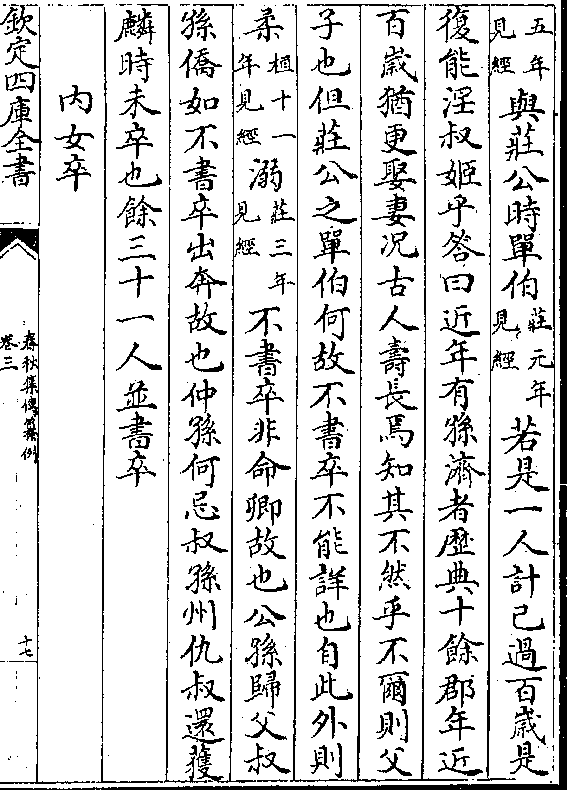 五年見經與莊公時單伯莊元年見經若是一人計已過百歲是
復能淫叔姬乎答曰近年有孫濟者歷典十餘郡年近
百歲猶更娶妻况古人壽長焉知其不然乎不爾則父
子也但莊公之單伯何故不書卒不能詳也自此外則
柔桓十一年見經溺莊三年見經不書卒非命卿故也公孫歸父叔
孫僑如不書卒出奔故也仲孫何忌叔孫州仇叔還獲
麟時未卒也餘三十一人並書卒
内女卒
欽定四庫全書
春秋集傳纂例
卷三
十七